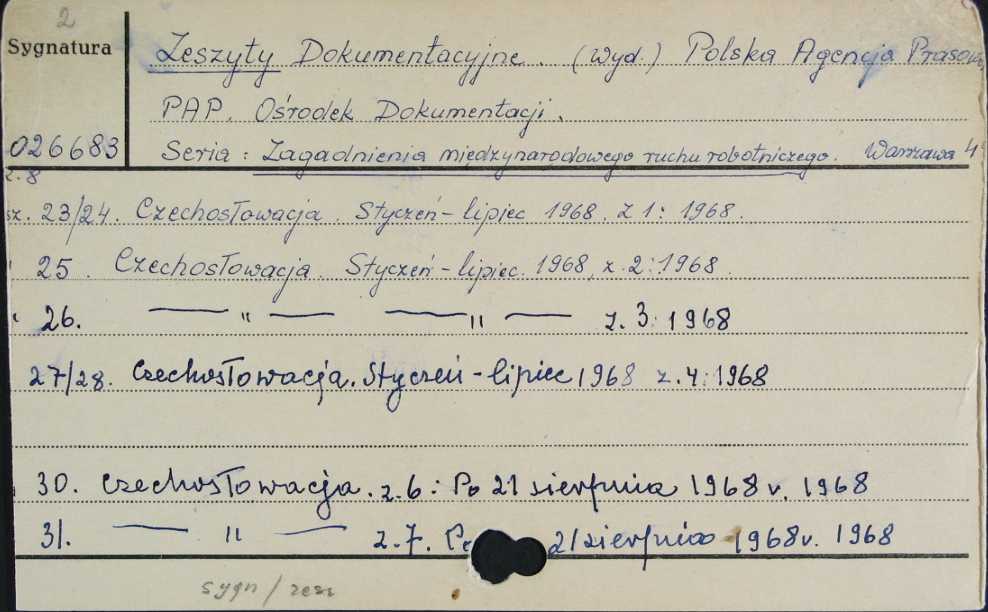 2
Sygnatura
Zeszyty Dokumentacyjne. (wyd.) Polska Agencja Prasowa
PAP. Ośrodek Dokumentacji.
026683 Seria: Zagadnienia międzynarodowego ruchu robotniczego. Warszawa 4°
z. 8
sz. 23/24. Czechosłowacja. Styczeń-lipiec 1968. z 1: 1968.
" 25. Czechosłowacja. Styczeń-lipiec. 1968, z. 2: 1968.
" 26. — " — — " — z. 3: 1968
27/28. Czechosłowacja. Styczeń-lipiec 1968 z. 4: 1968
30. Czechosłowacja. z. 6: Po 21 sierpnia 1968 r. 1968
31. — " — z. 7. Po 21 sierpnia 1968 r. 1968
sygn /